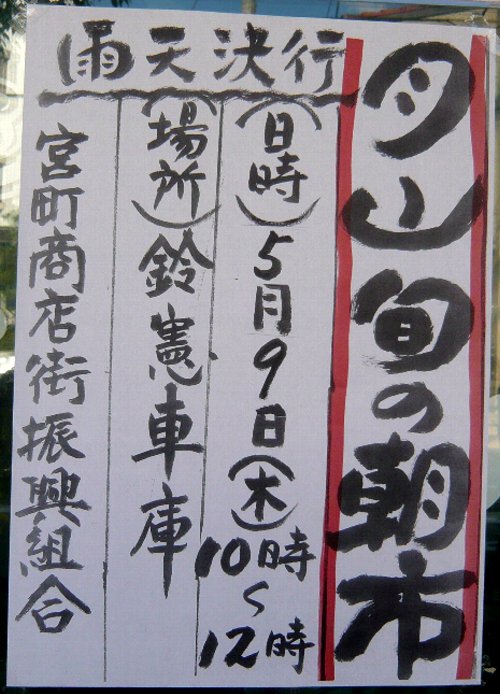 月山旬の朝市
雨天決行
(日時)5月9日(木)10時〜12時
(場所)鈴憲車庫
宮町商店街振興組合